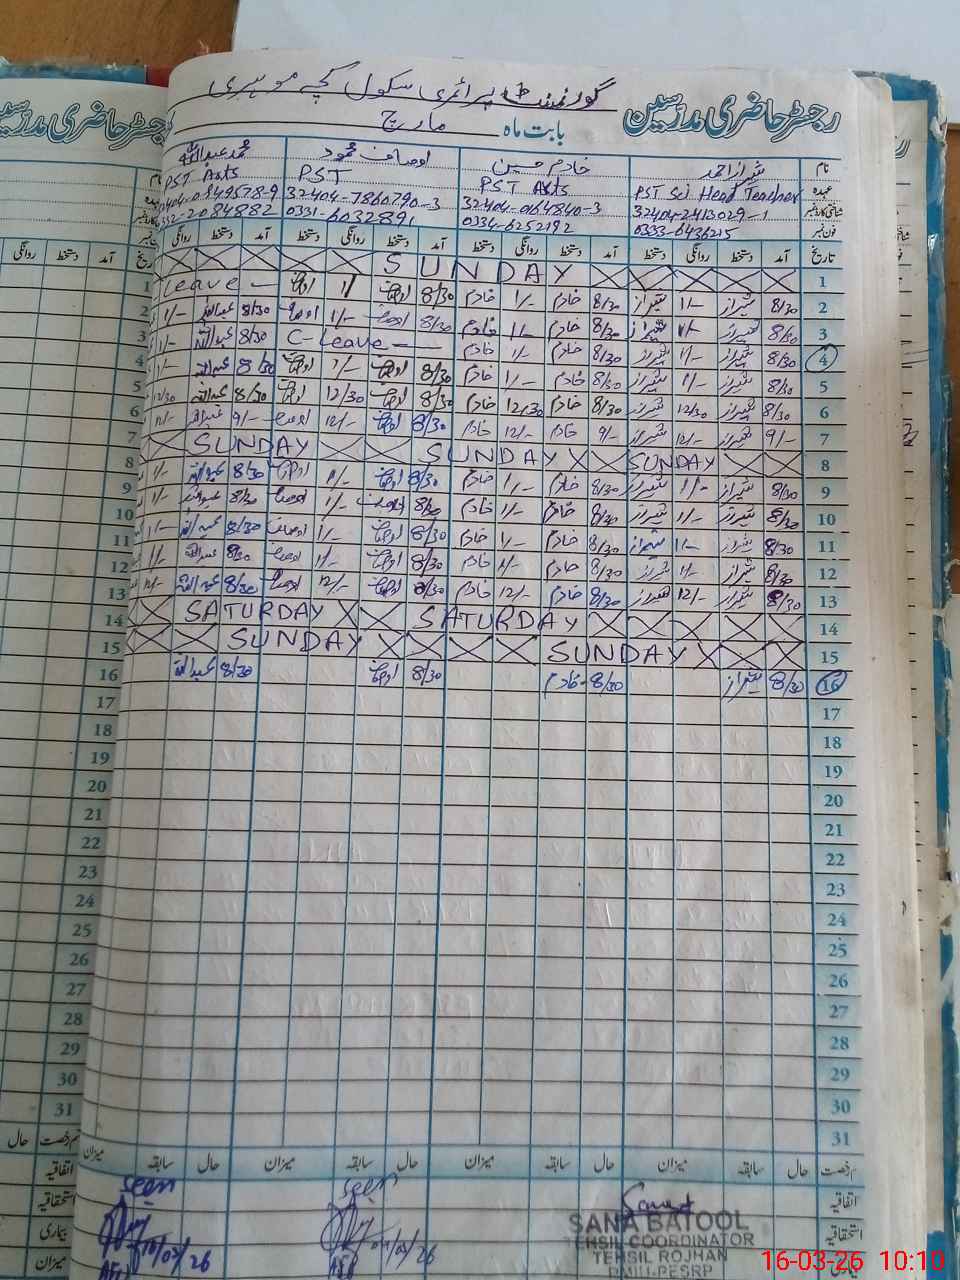 گورنمنٹ پرائمری سکول کچے موہری
رجسٹر حاضری مدرسین
بابت ماہ مارچ
نام شیراز احمد خادم حسین اوصاف محمود محمد عبداللہ
عہدہ PST Sci Head Teacher PST Arts PST PST Arts
شناختی کارڈ نمبر 32404-2413029-1 32404-0164840-3 32404-7860790-3
فون نمبر 0333-6436215 0334-6252192 0331-6032891 0332-2084882
تاریخ آمد دستخط روانگی دستخط آمد دستخط روانگی دستخط آمد دستخط روانگی دستخط آمد دستخط روانگی
1 SUNDAY
2 8/30 شیراز 1/- شیراز 8/30 خادم 1/- خادم 8/30 اوصاف 1/ اوصاف Leave
3 8/30 شیراز 1/- شیراز 8/30 خادم 1/- خادم 8/30 اوصاف 1/- اوصاف 8/30 عبداللہ 1/-
4 8/30 شیراز 1/- شیراز 8/30 خادم 1/- خادم C-Leave 8/30 عبداللہ 1/-
5 8/30 شیراز 1/- شیراز 8/30 خادم 1/- خادم 8/30 اوصاف 1/- اوصاف 8/30 عبداللہ 1/-
6 8/30 شیراز 12/30 شیراز 8/30 خادم 12/30 خادم 8/30 اوصاف 12/30 اوصاف 8/30 عبداللہ 12/30
7 9/- شیراز 12/- شیراز 9/- خادم 12/- خادم 8/30 اوصاف 12/- اوصاف 9/- عبداللہ 12/-
8 SUNDAY SUNDAY SUNDAY
9 8/30 شیراز 1/- شیراز 8/30 خادم 1/- خادم 8/30 اوصاف 1/- اوصاف 8/30 عبداللہ 1/-
10 8/30 شیراز 1/- شیراز 8/30 خادم 1/- خادم 8/30 اوصاف 1/- اوصاف 8/30 عبداللہ 1/-
11 8/30 شیراز 1/- شیراز 8/30 خادم 1/- خادم 8/30 اوصاف 1/- اوصاف 8/30 عبداللہ 1/-
12 8/30 شیراز 1/- شیراز 8/30 خادم 1/- خادم 8/30 اوصاف 1/- اوصاف 8/30 عبداللہ 1/-
13 8/30 شیراز 12/- شیراز 8/30 خادم 12/- خادم 8/30 اوصاف 12/- اوصاف 8/30 عبداللہ 12/-
14 SATURDAY SATURDAY
15 SUNDAY SUNDAY
16 8/30 شیراز 8/30 خادم 8/30 اوصاف 8/30 عبداللہ
17
18
19
20
21
22
23
24
25
26
27
28
29
30
31
قسم رخصت حال سابقہ میزان حال سابقہ میزان حال سابقہ میزان
اتفاقیہ
استحقاقیہ
بیماری
میزان
Seen
Seen
SANA BATOOL
TEHSIL COORDINATOR
TEHSIL ROJHAN
PMIU-PESRP
16-03-26 10:10